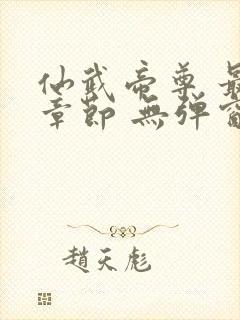 仙武帝尊 最
章節 無彈窗
趙天彪